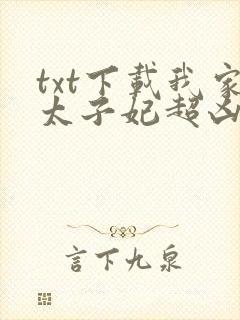 txt下载我家
太子妃超凶
言下九泉